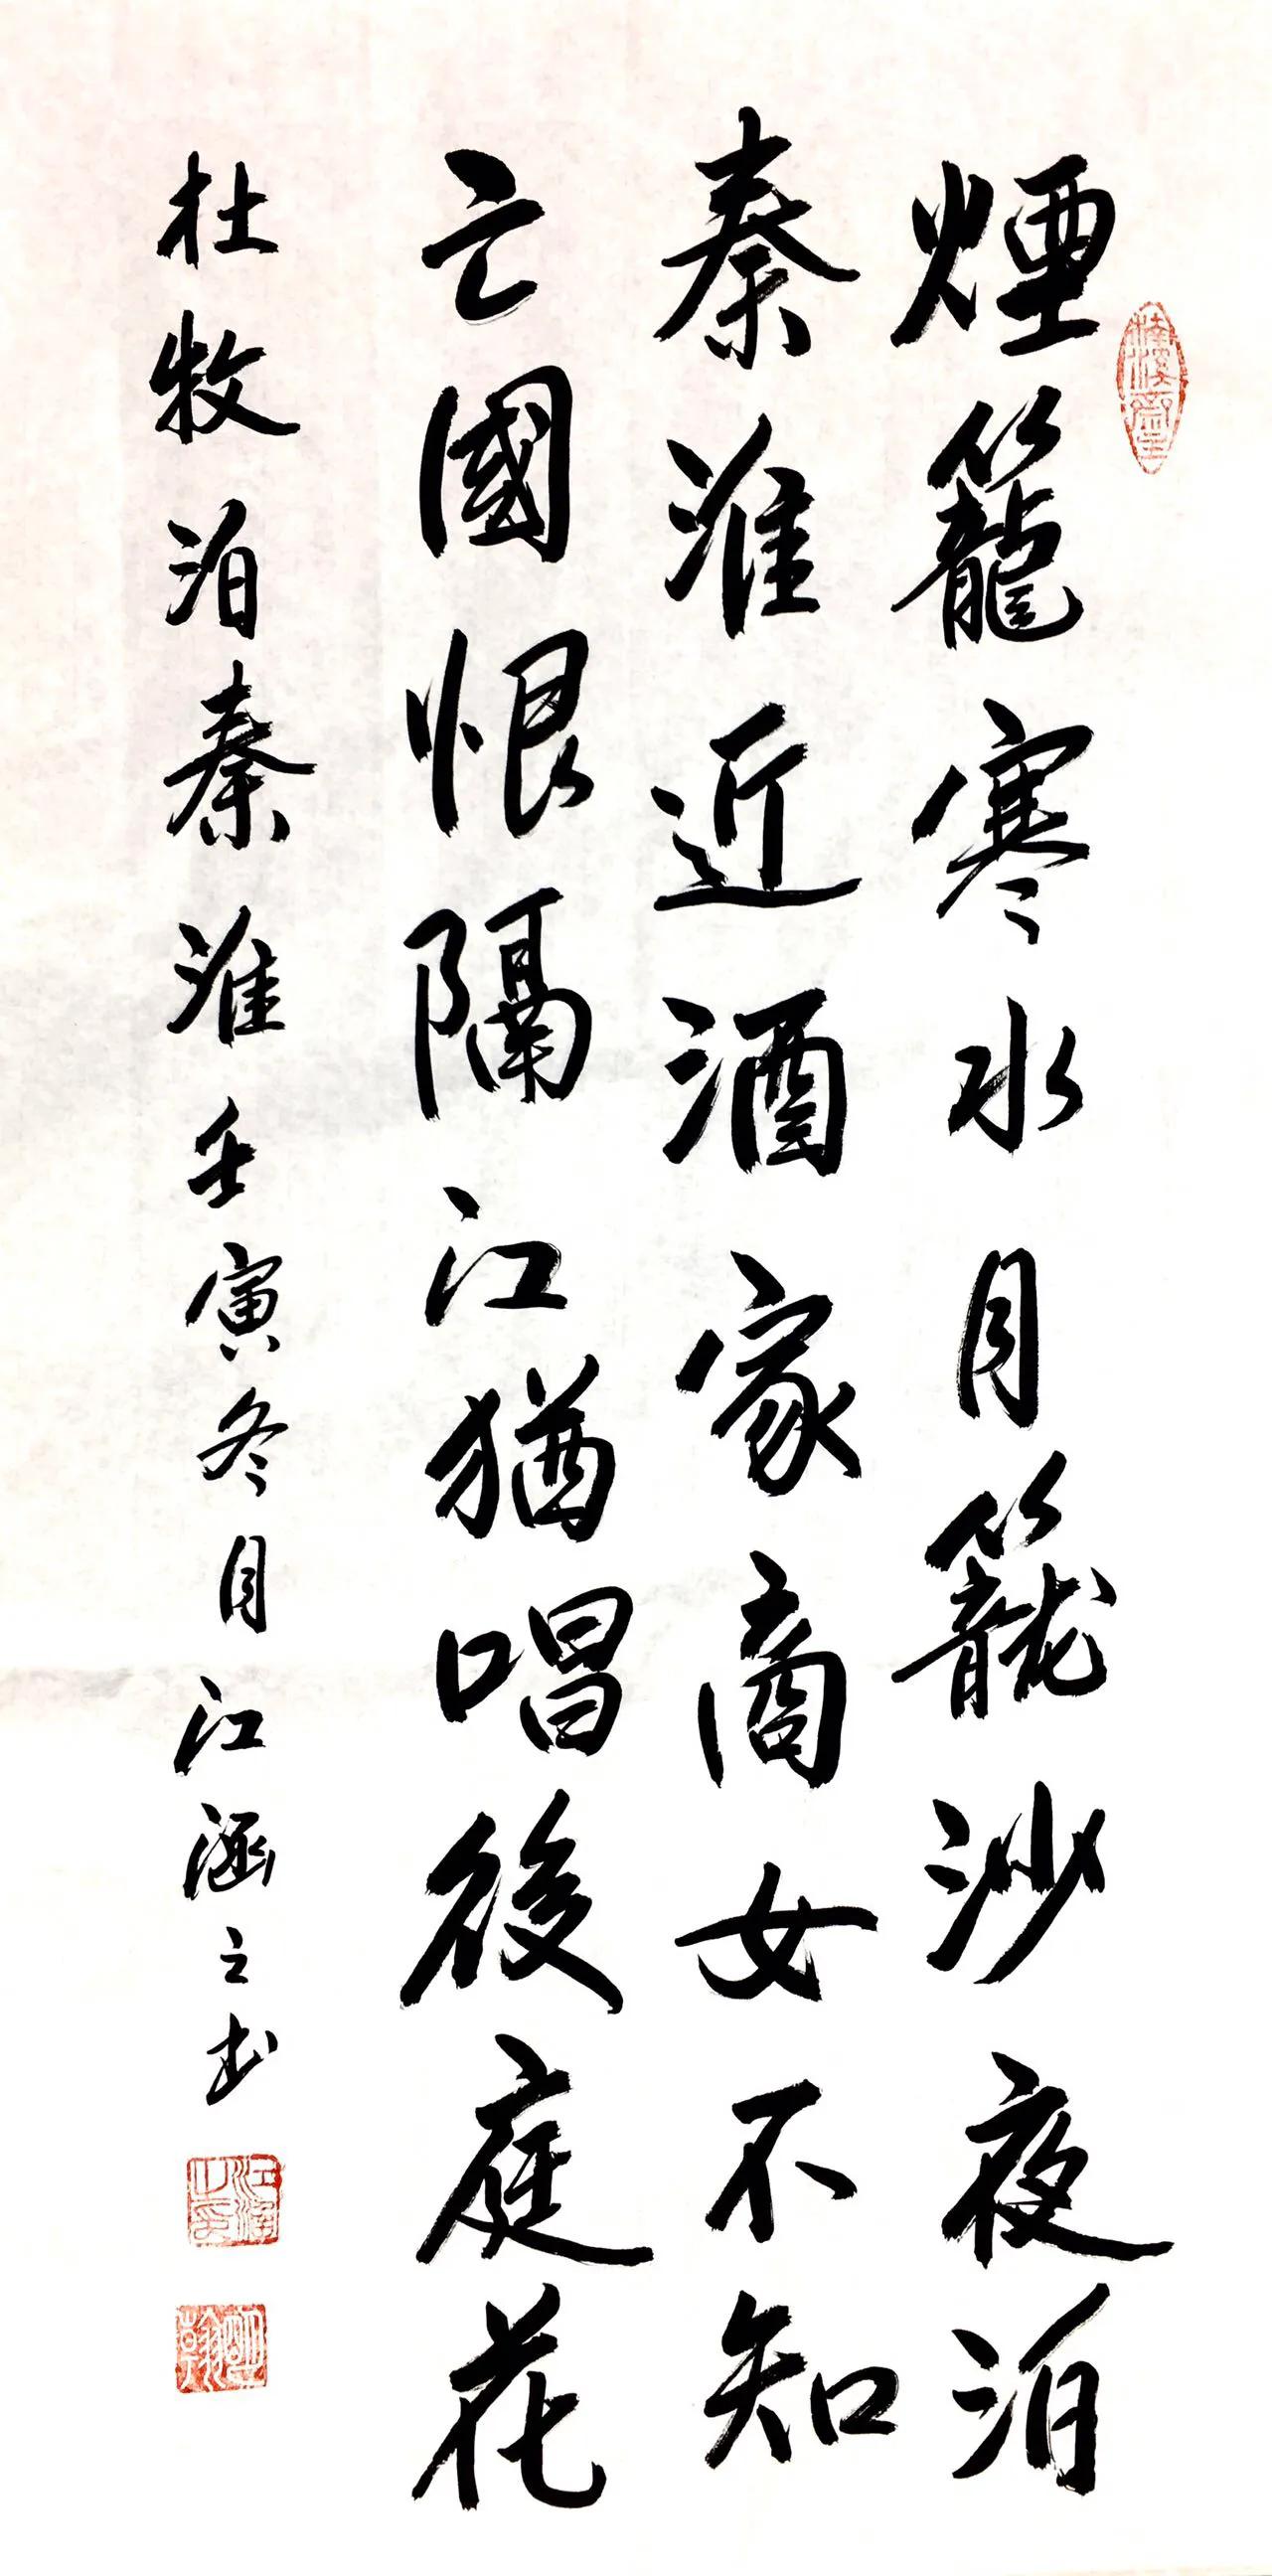 煙籠寒水月籠沙夜泊
秦淮近酒家商女不知
亡國恨隔江猶唱後庭花
杜牧泊秦淮壬寅冬月江涵之书